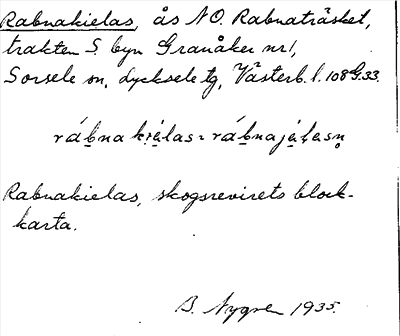 Rabnakielas, ås NO. Rabnaträsket,
trakten S. byn Granåker nr 1,
Sorsele sn, Lycksele tg, Västerb. l. 108G.33.
rábnakiẹ́las: rábnajẹ́lasn̥
Rabnakielas, skogsrevirets block-
karta.
B. Nygren 1935.